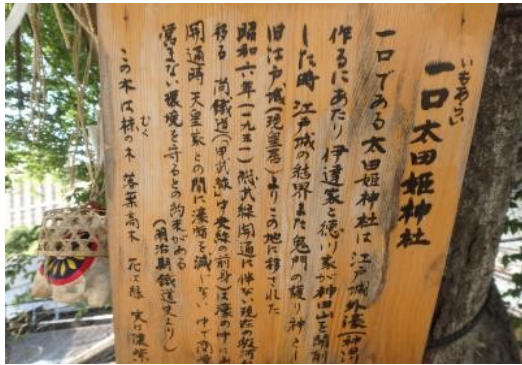 いもあらい
一口太田姫神社
一口である太田姫神社は 江戸城外濠(神田川
作るにあたり 伊達家と徳川家が神田山を開削
した時 江戸城の結界また鬼門の護り神とし
旧江戸城(現皇居)よりこの地に移された
昭和六年(一九三一)総武線開通に伴ない現在の駿河台
移る 尚鉄道(甲武線)中央線の前身)は濠の中に
開通時 天皇家との間に濠幅を減じない
営まない環境を守るとの約束がある
(明治期鉄道史より)
むく
この木は椋の木 落葉高木 花は緑 実は濃紫